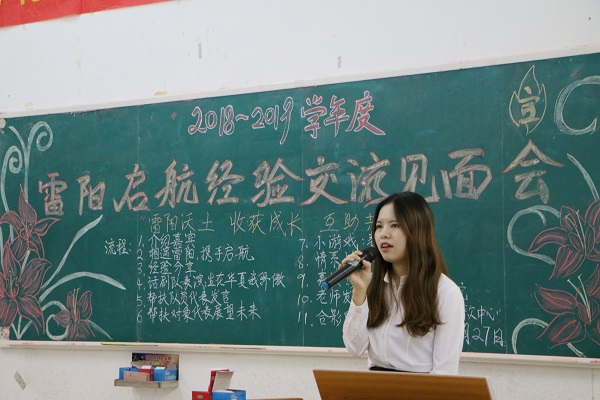 2018~2019学年度
雷阳启航经验交流见面会
雷阳沃土 收获成长 互助
流程:
1. 介绍嘉宾
2. 相逢雷阳,携手启航
3. 经验分享
4. 话剧队表演
5. 帮扶队员代表发言
6. 帮扶对象代表展望未来
7. 小游戏
8. 情系
9.
10. 老师发
11. 合影
中心
月27日